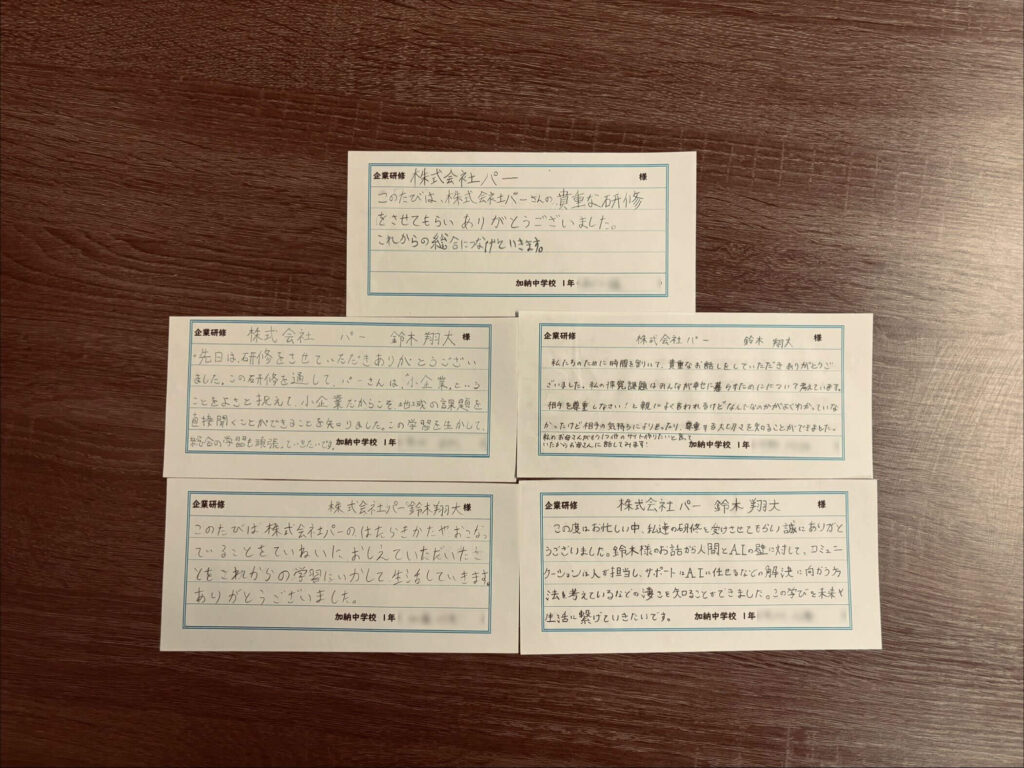 企業研修 株式会社パー 様
このたびは、株式会社パーさんの貴重な研修
をさせてもらい ありがとうございました。
これからの総合につなげていきます。
加納中学校 1年
企業研修 株式会社 パー 鈴木 翔大 様
先日は、研修をさせていただきありがとうござい
ました。この研修を通して、パーさんは、"小企業"という
ことをよさと捉えて、小企業だからこそ、地域の課題を
直接聞くことができることを知りました。この学習を生かして、
総合の学習も頑張っていきたいです。 加納中学校 1年
企業研修 株式会社 パー 鈴木 翔大 様
私たちのために時間を割いて、貴重なお話しをしていただき ありがとうご
ざいました。私の探究課題はみんなが幸せに暮らすためにについて考えています。
相手を尊重しなさい!と親によく言われるけどなんでなのかがよくわかっていな
かったけど相手の気持ちにより添ったり、尊重する大切さを知ることができました。
私のお母さんが サイト作りたいと言って
いたからお母さんに話してみます! 加納中学校 1年
企業研修 株式会社パー 鈴木翔大 様
このたびは 株式会社パーのはたらきかたやおこなっ
ていることをていねいに、おしえていただいたこ
とをこれからの学習にいかして生活していきます。
ありがとうございました。
加納中学校 1年
企業研修 株式会社パー 鈴木 翔大 様
この度はお忙しい中、私達の研修を受けさせてもらい誠にありがと
うございました。鈴木様のお話から人間とAIの壁に対して、コミュニ
ケーションは人が担当し、サポートはAIに任せるなどの解決に向かう方
法を考えているなどの凄さを知ることができました。この学びを未来や
生活に繋げていきたいです。 加納中学校 1年